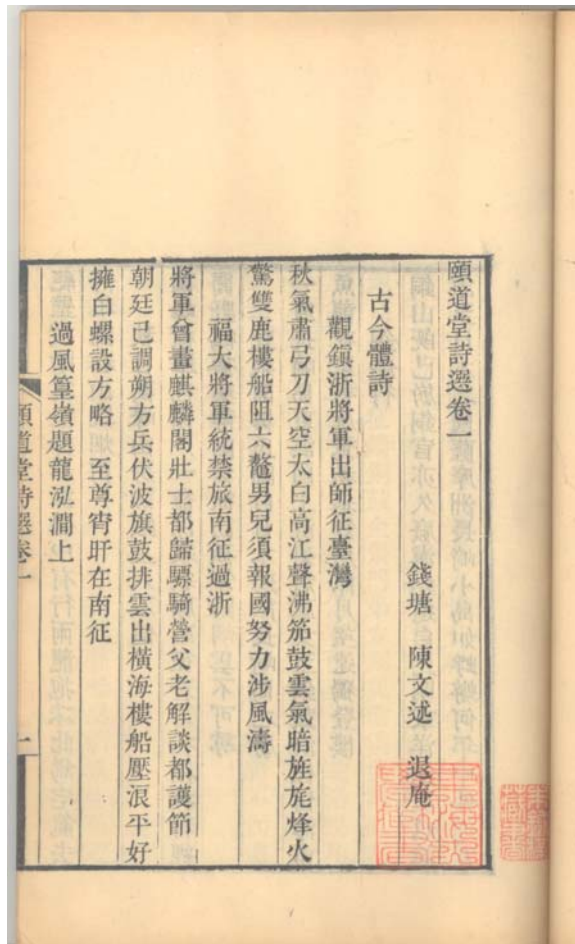 頤道堂詩選卷一
錢塘 陳文述 退庵
古今體詩
觀鎮浙將軍出師征臺灣
秋氣肅弓刀天空太白高江聲沸笳鼓雲氣暗旌旄烽火
驚雙鹿樓船阻六鼇男兒須報國努力涉風濤
福大將軍統禁旅南征過浙
將軍曾畫麒麟閣壯士都歸驃騎營父老解談都護節
朝廷已調朔方兵伏波旗鼓排雲出橫海樓船壓浪平好
擁白螺設方略 至尊宵旰在南征
過風篁嶺題龍泓澗上
頤道堂詩選卷一
一